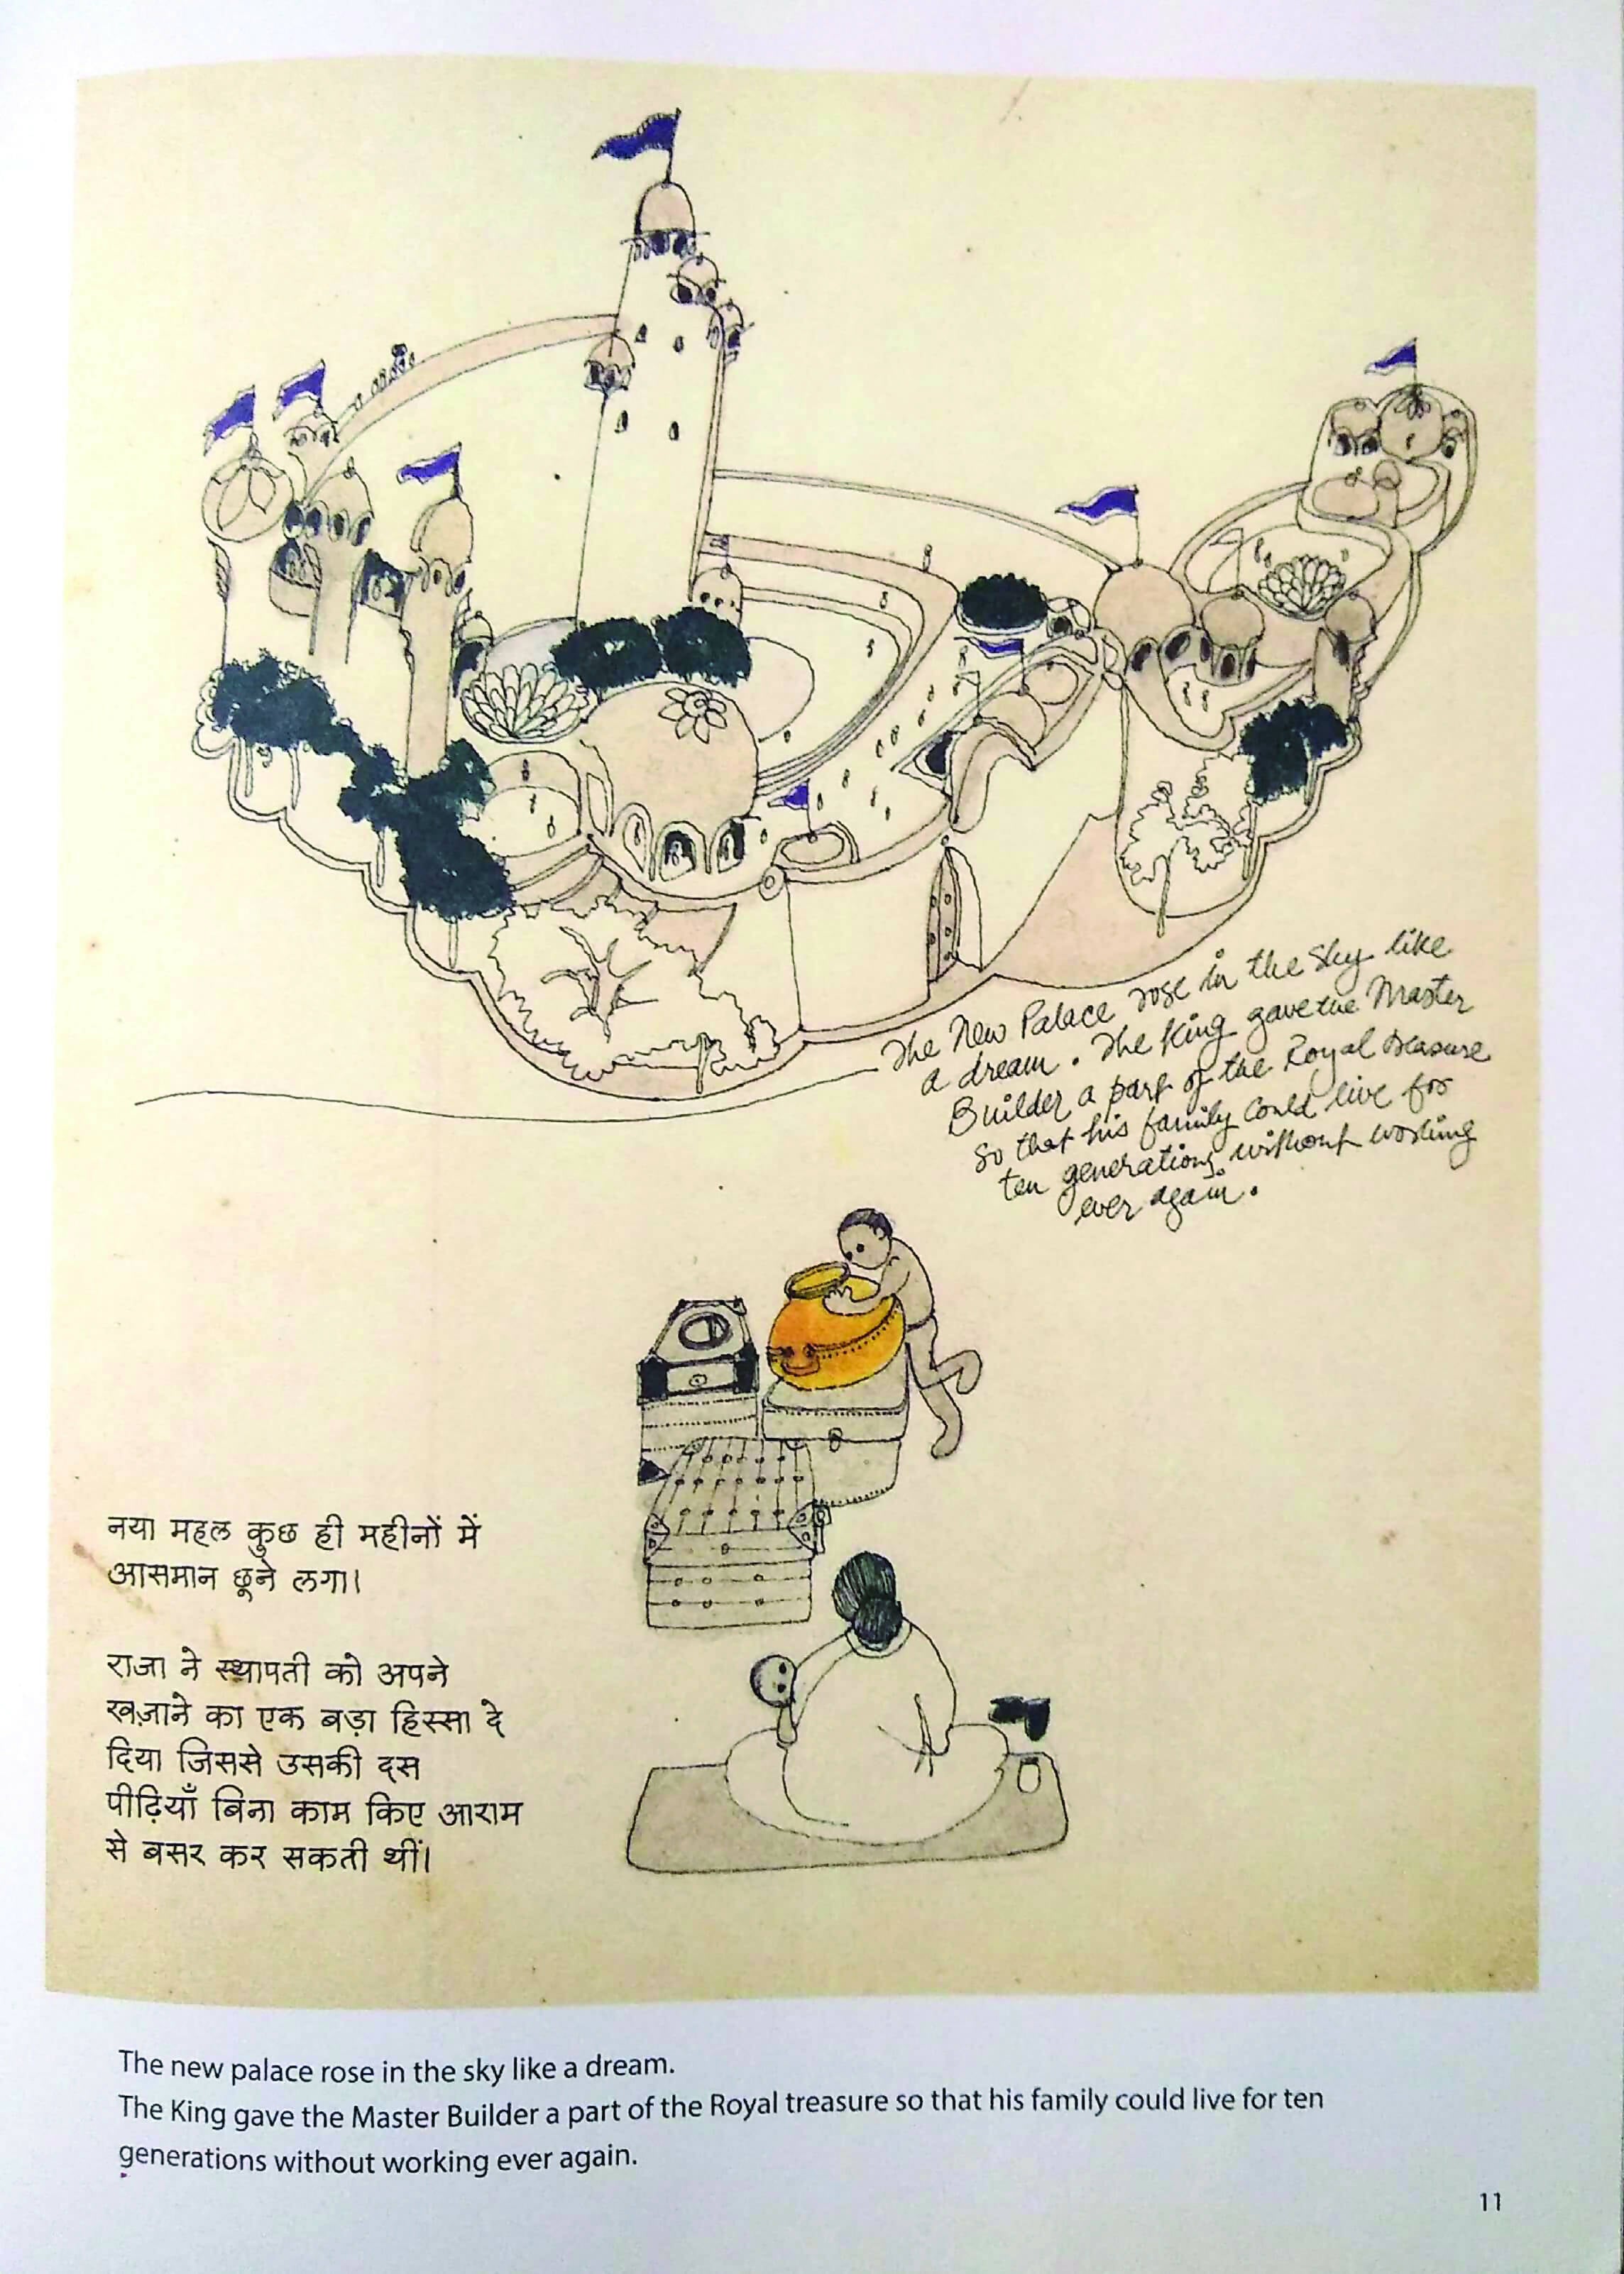 The New Palace rose in the sky like
a dream. The King gave the Master
Builder a part of the Royal treasure
so that his family could live for
ten generations without working
ever again.
नया महल कुछ ही महीनों में
आसमान छूने लगा।
राजा ने स्थापती को अपने
खज़ाने का एक बड़ा हिस्सा दे
दिया जिससे उसकी दस
पीढ़ियाँ बिना काम किए आराम
से बसर कर सकती थीं।
The new palace rose in the sky like a dream.
The King gave the Master Builder a part of the Royal treasure so that his family could live for ten
generations without working ever again.
11